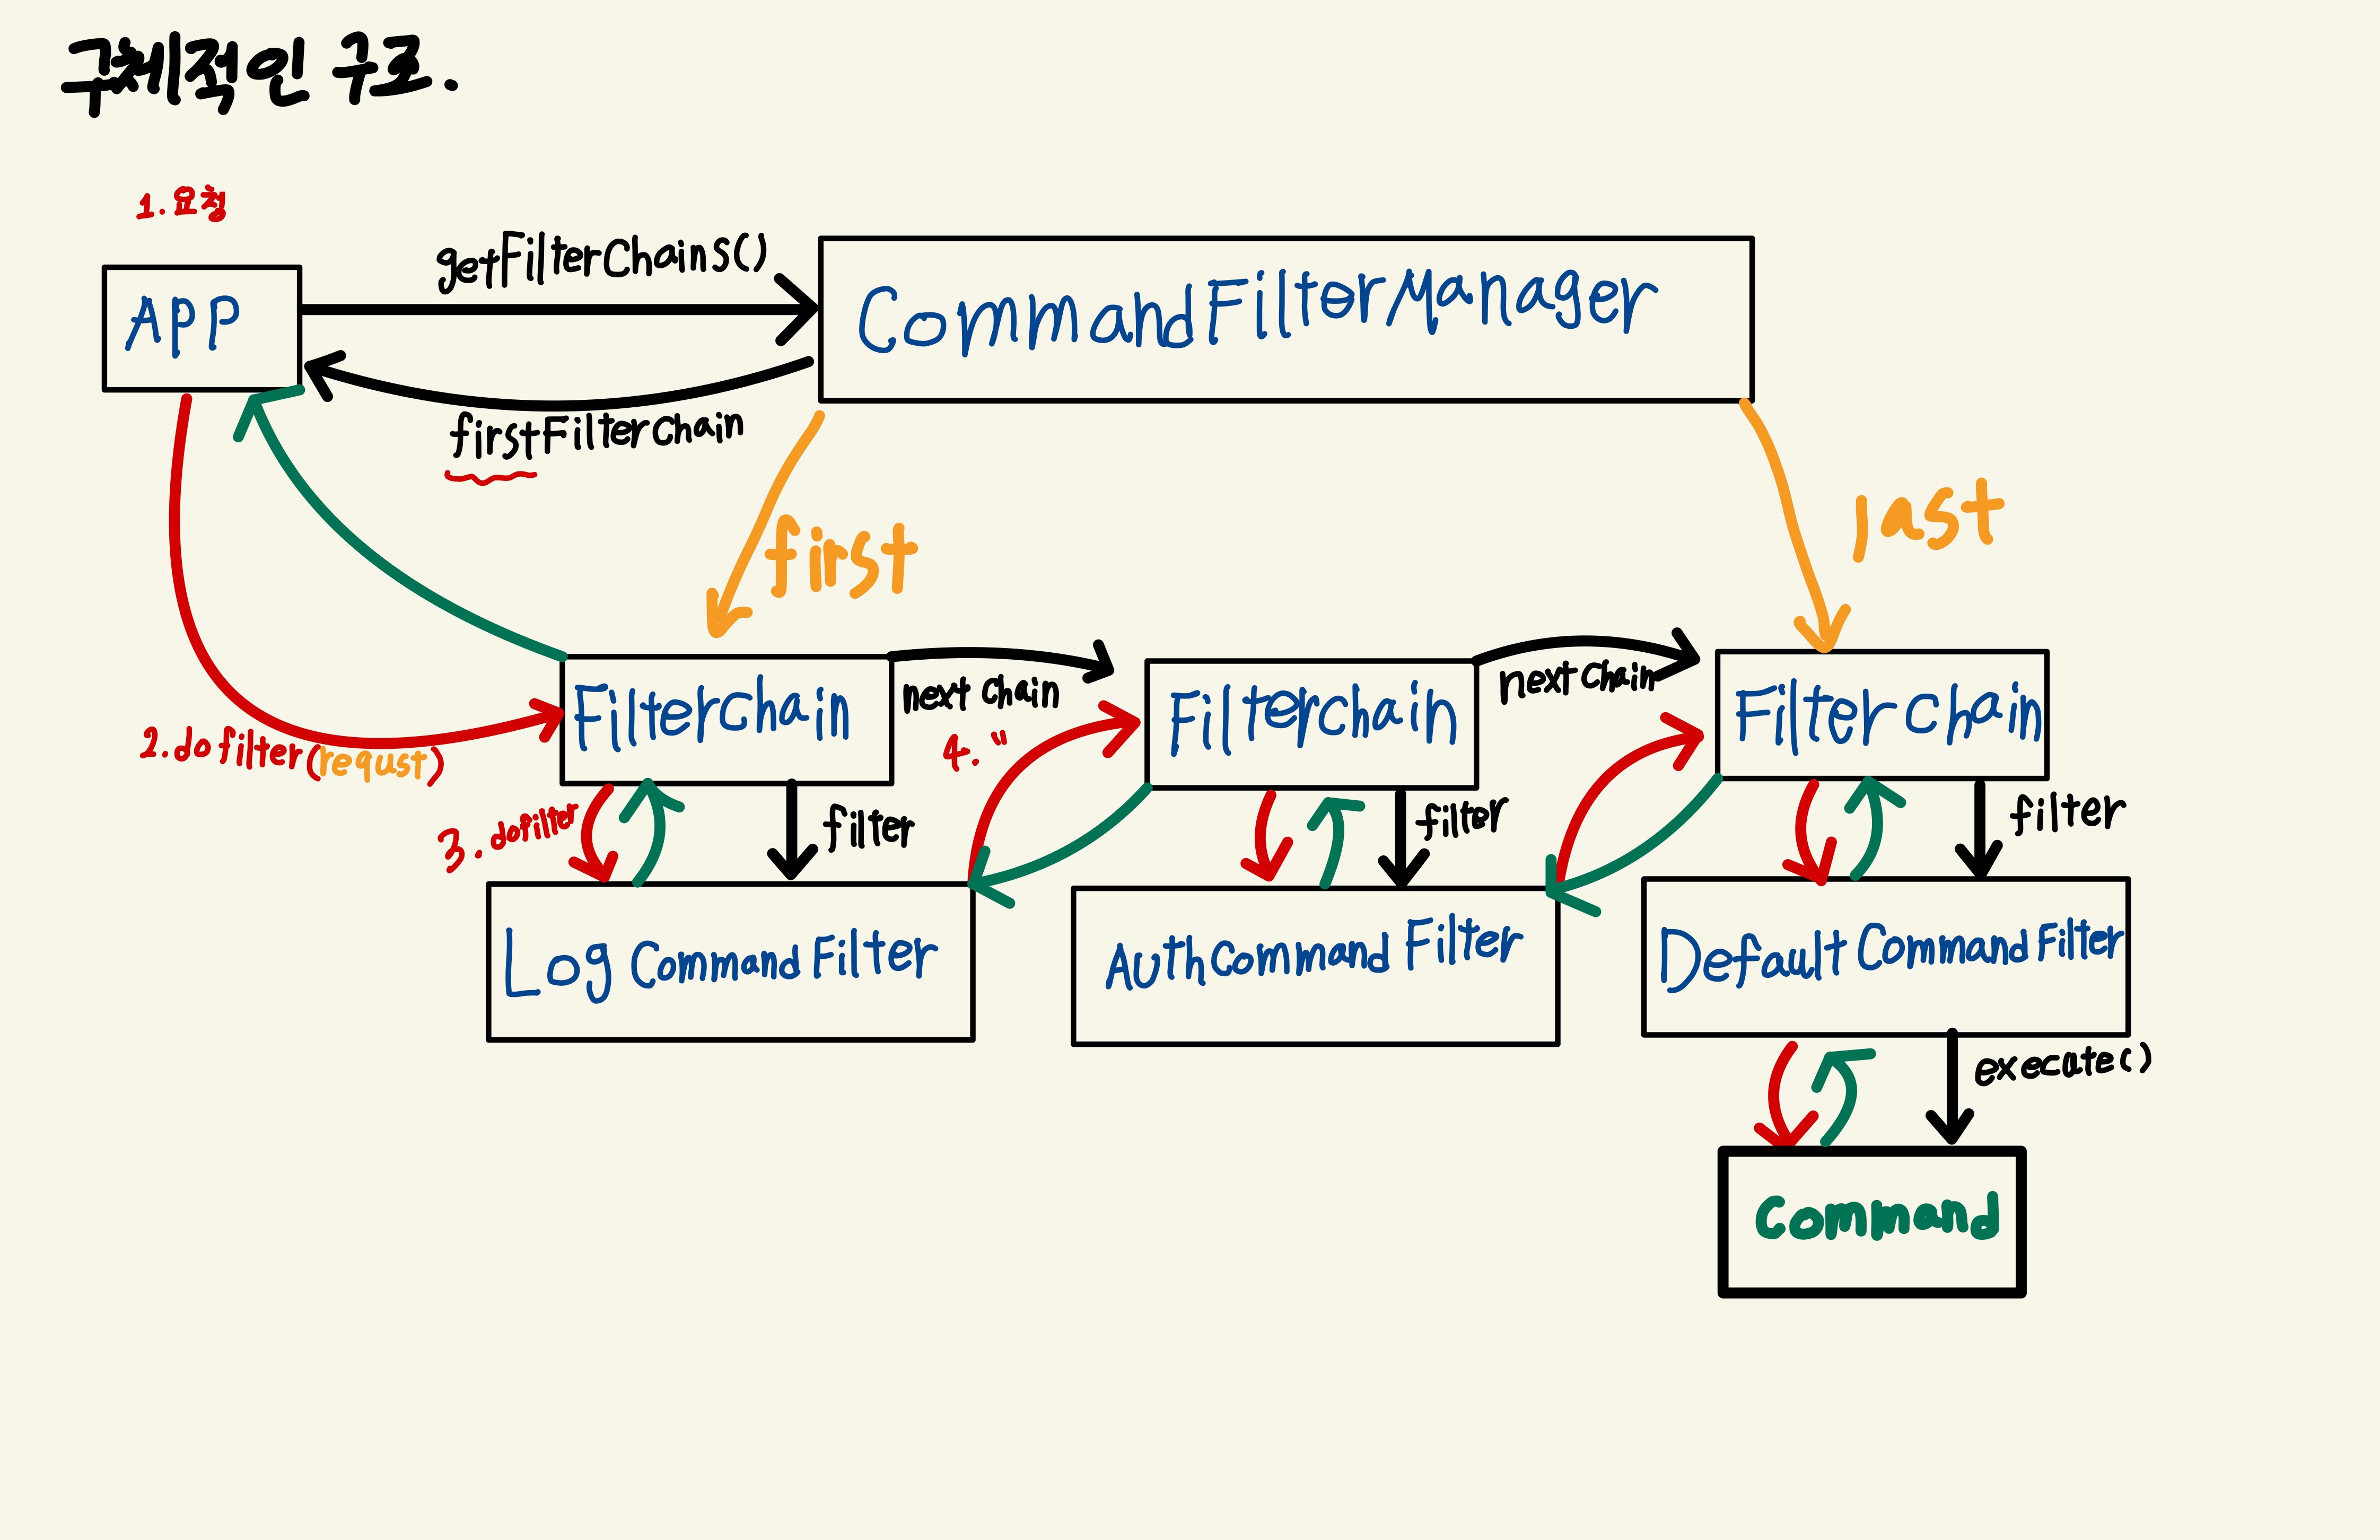 구체적인 구조.
1. 요청
APP
getFilterChains()
CommandFilterManager
firstFilterchain
first
last
Filterchain
next chain
Filterchain
next chain
Filterchain
2. dofilter(requst)
3. dofilter
filter
4. "
filter
filter
Log Command Filter
Auth Command Filter
Default Command Filter
execate()
Command